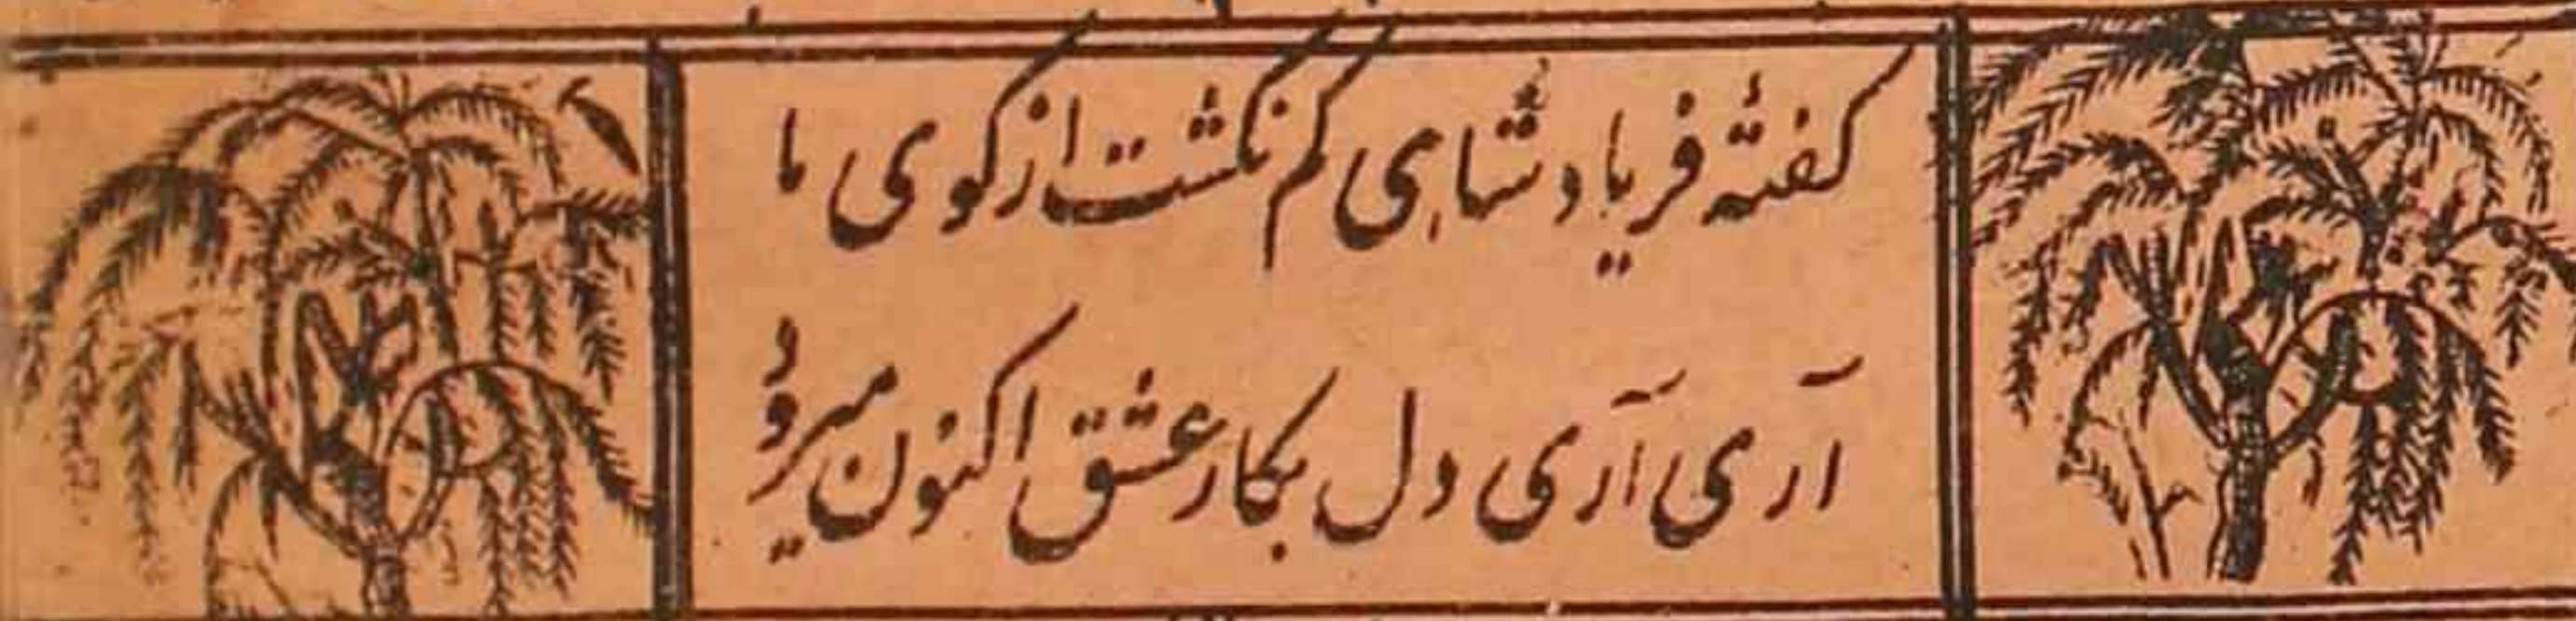 گفتهٔ فریاد شاهی کم نگشت از کوی ما
آری آری دل بکار عشق اکنون میرود